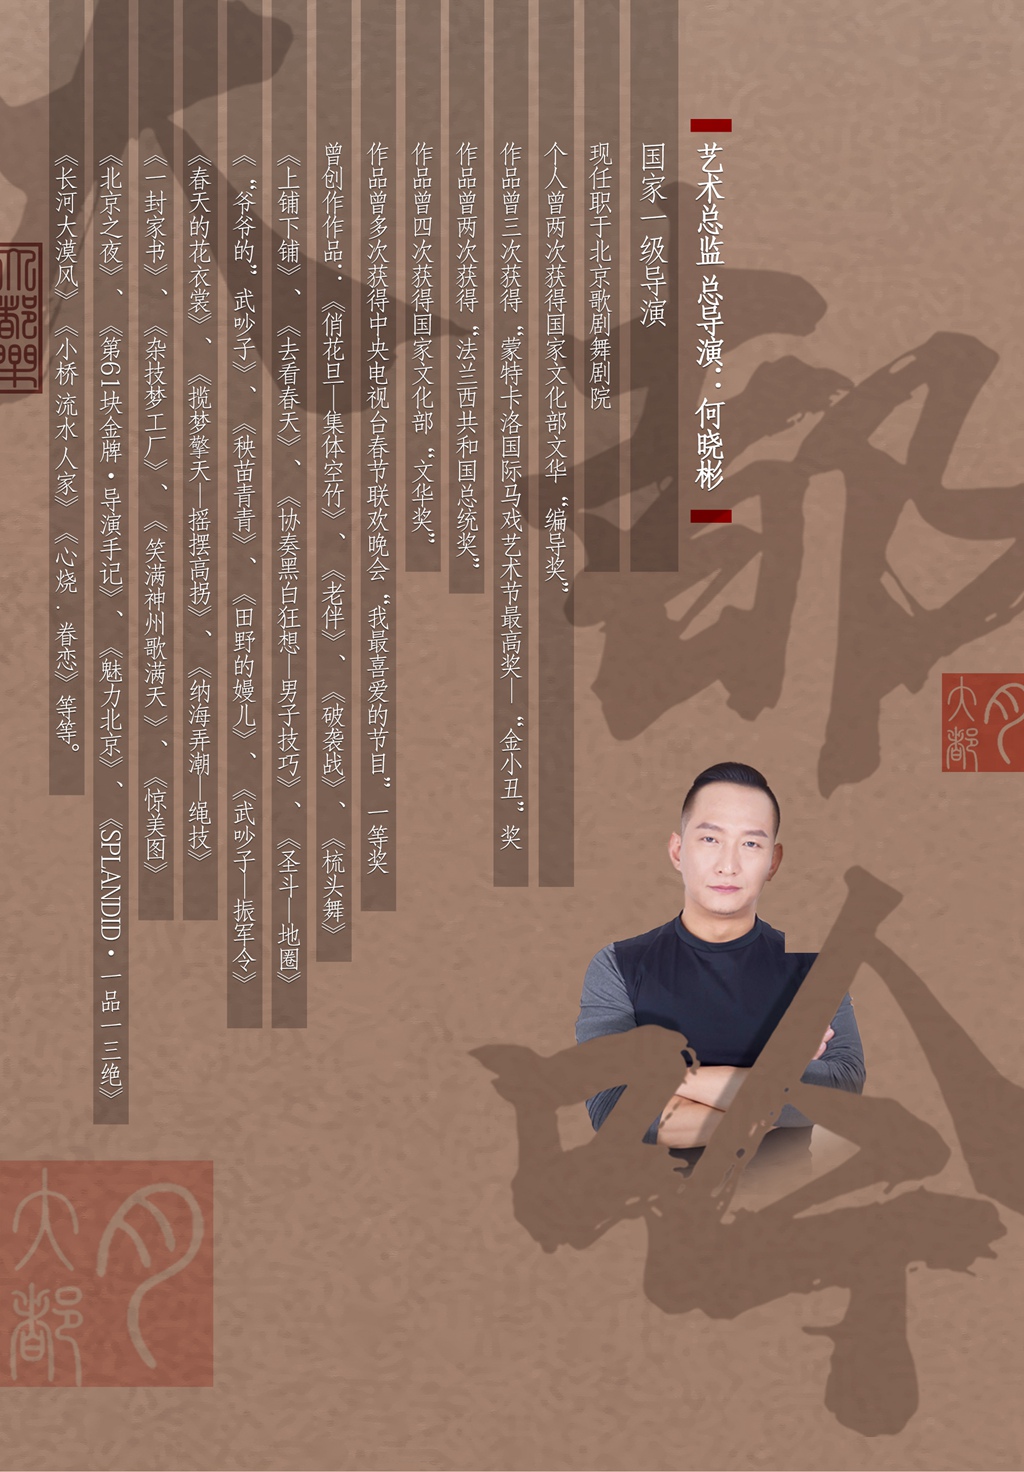 艺术总监 总导演：何晓彬
国家一级导演
现任职于北京歌剧舞剧院
个人曾两次获得国家文化部文华“编导奖”
作品曾三次获得“蒙特卡洛国际马戏艺术节最高奖—“金小丑”奖
作品曾两次获得“法兰西共和国总统奖”
作品曾四次获得国家文化部“文华奖”
作品曾多次获得中央电视台春节联欢晚会“我最喜爱的节目”一等奖
曾创作作品：《俏花旦—集体空竹》、《老伴》、《破袭战》、《梳头舞》
《上铺下铺》、《去看春天》、《协奏黑白狂想—男子技巧》、《圣斗—地圈》
《“爷爷的”武吵子》、《秧苗青青》、《田野的嫚儿》、《武吵子—振军令》
《春天的花衣裳》、《揽梦擎天—摇摆高拐》、《纳海弄潮—绳技》
《一封家书》、《杂技梦工厂》、《笑满神州歌满天》、《惊美图》
《北京之夜》、《第61块金牌·导演手记》、《魅力北京》、《SPLANDID·一品一三绝》
《长河大漠风》《小桥 流水 人家》《心烧.眷恋》等等。
大都
吟
月
大都
月
大都